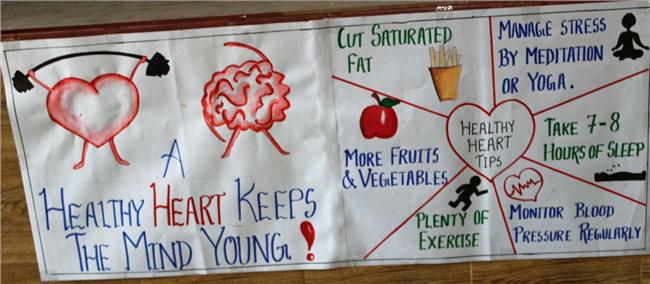 A
HEALTHY HEART KEEPS
THE MIND YOUNG!
CUT SATURATED
FAT
MANAGE STRESS
BY MEDITATION
OR YOGA.
MORE FRUITS
& VEGETABLES
HEALTHY
HEART
TIPS
TAKE 7-8
HOURS OF SLEEP
PLENTY OF
EXERCISE
MONITOR BLOOD
PRESSURE REGULARLY